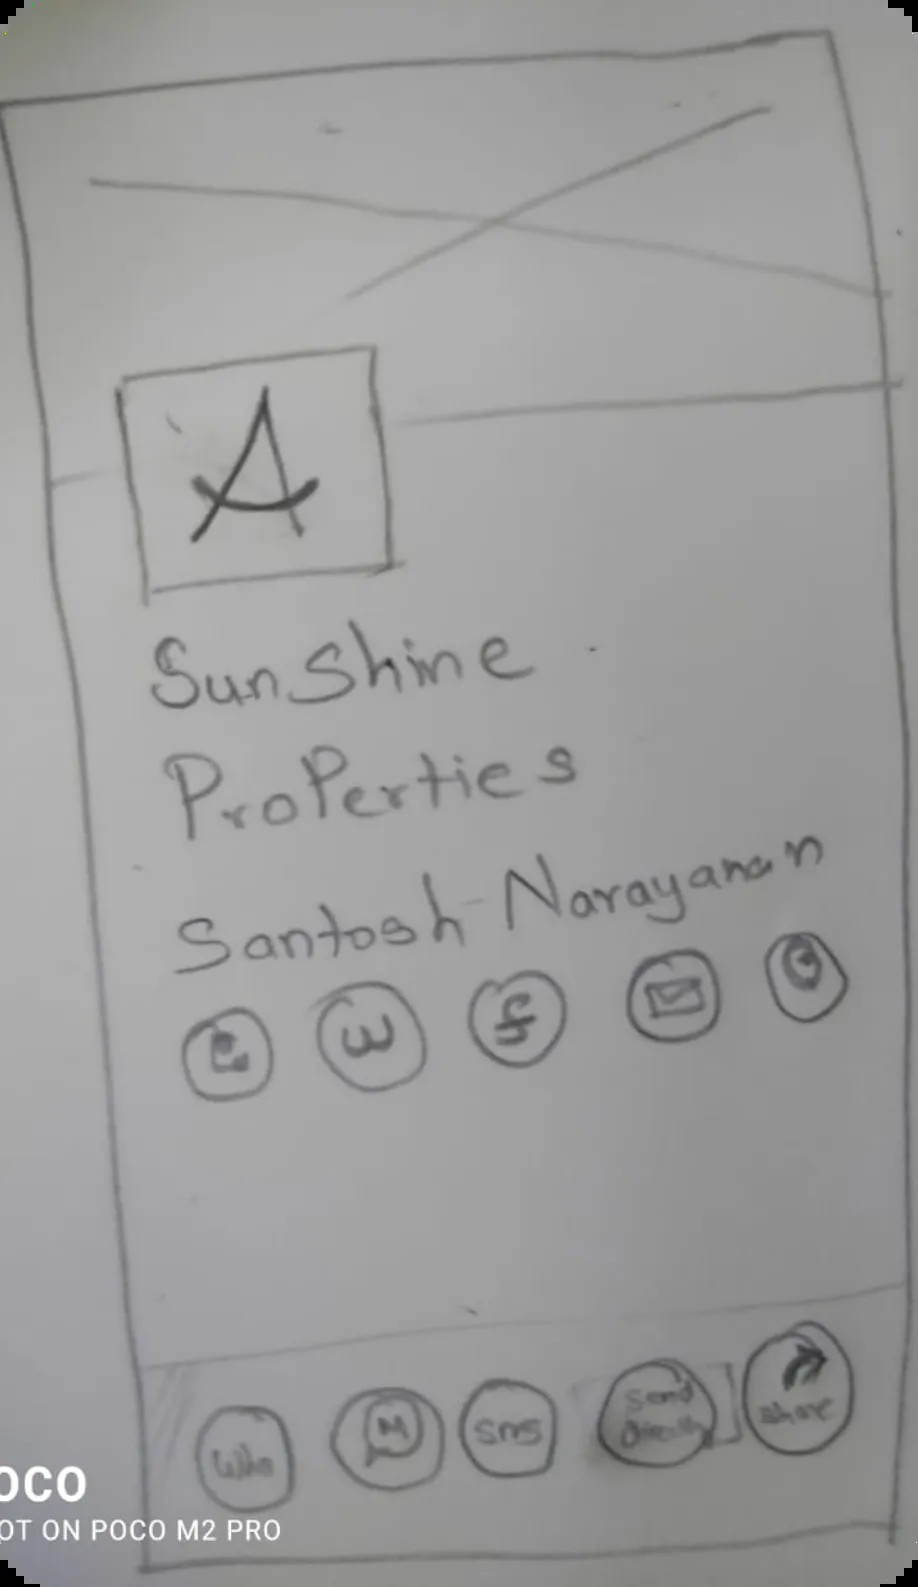 A
SunShine
ProPerties
Santosh Narayanan
W f
SMS Send Directly Share
OCO
OT ON POCO M2 PRO